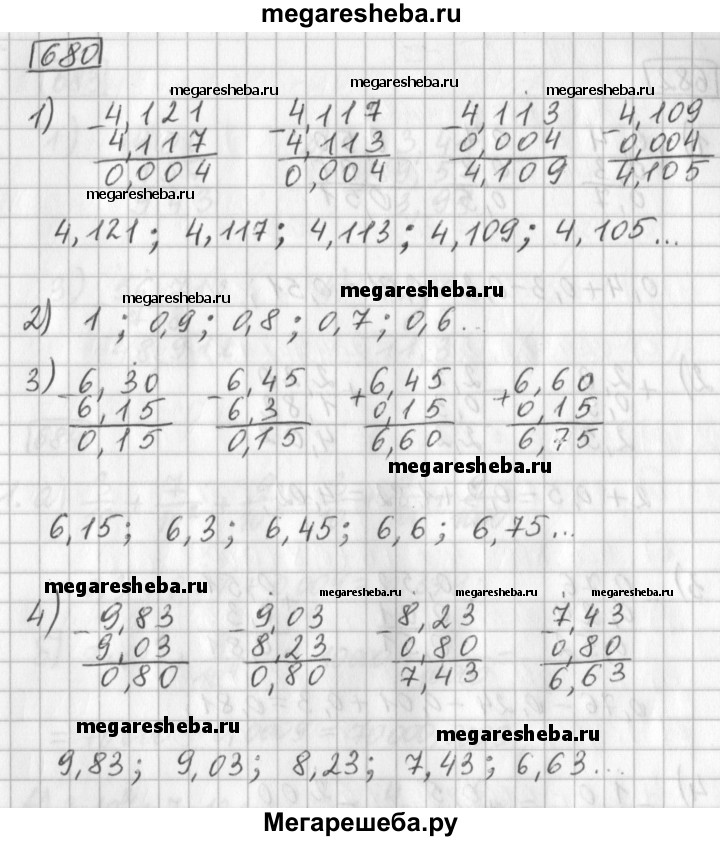 megaresheba.ru
680
megaresheba.ru megaresheba.ru megaresheba.ru
1) - 4,121 - 4,117 - 4,113 - 4,109
4,117 4,113 0,004 0,004
0,004 0,004 4,109 4,105
megaresheba.ru
4,121; 4,117; 4,113; 4,109; 4,105...
megaresheba.ru megaresheba.ru
2) 1; 0,9; 0,8; 0,7; 0,6...
3) - 6,30 - 6,45 + 6,45 + 6,60
6,15 6,3 0,15 0,15
0,15 0,15 6,60 6,75
megaresheba.ru
6,15; 6,3; 6,45; 6,6; 6,75...
megaresheba.ru megaresheba.ru megaresheba.ru megaresheba.ru
4) - 9,83 - 9,03 - 8,23 - 7,43
9,03 8,23 0,80 0,80
0,80 0,80 7,43 6,63
megaresheba.ru megaresheba.ru
9,83; 9,03; 8,23; 7,43; 6,63...
Мегарешеба.ру